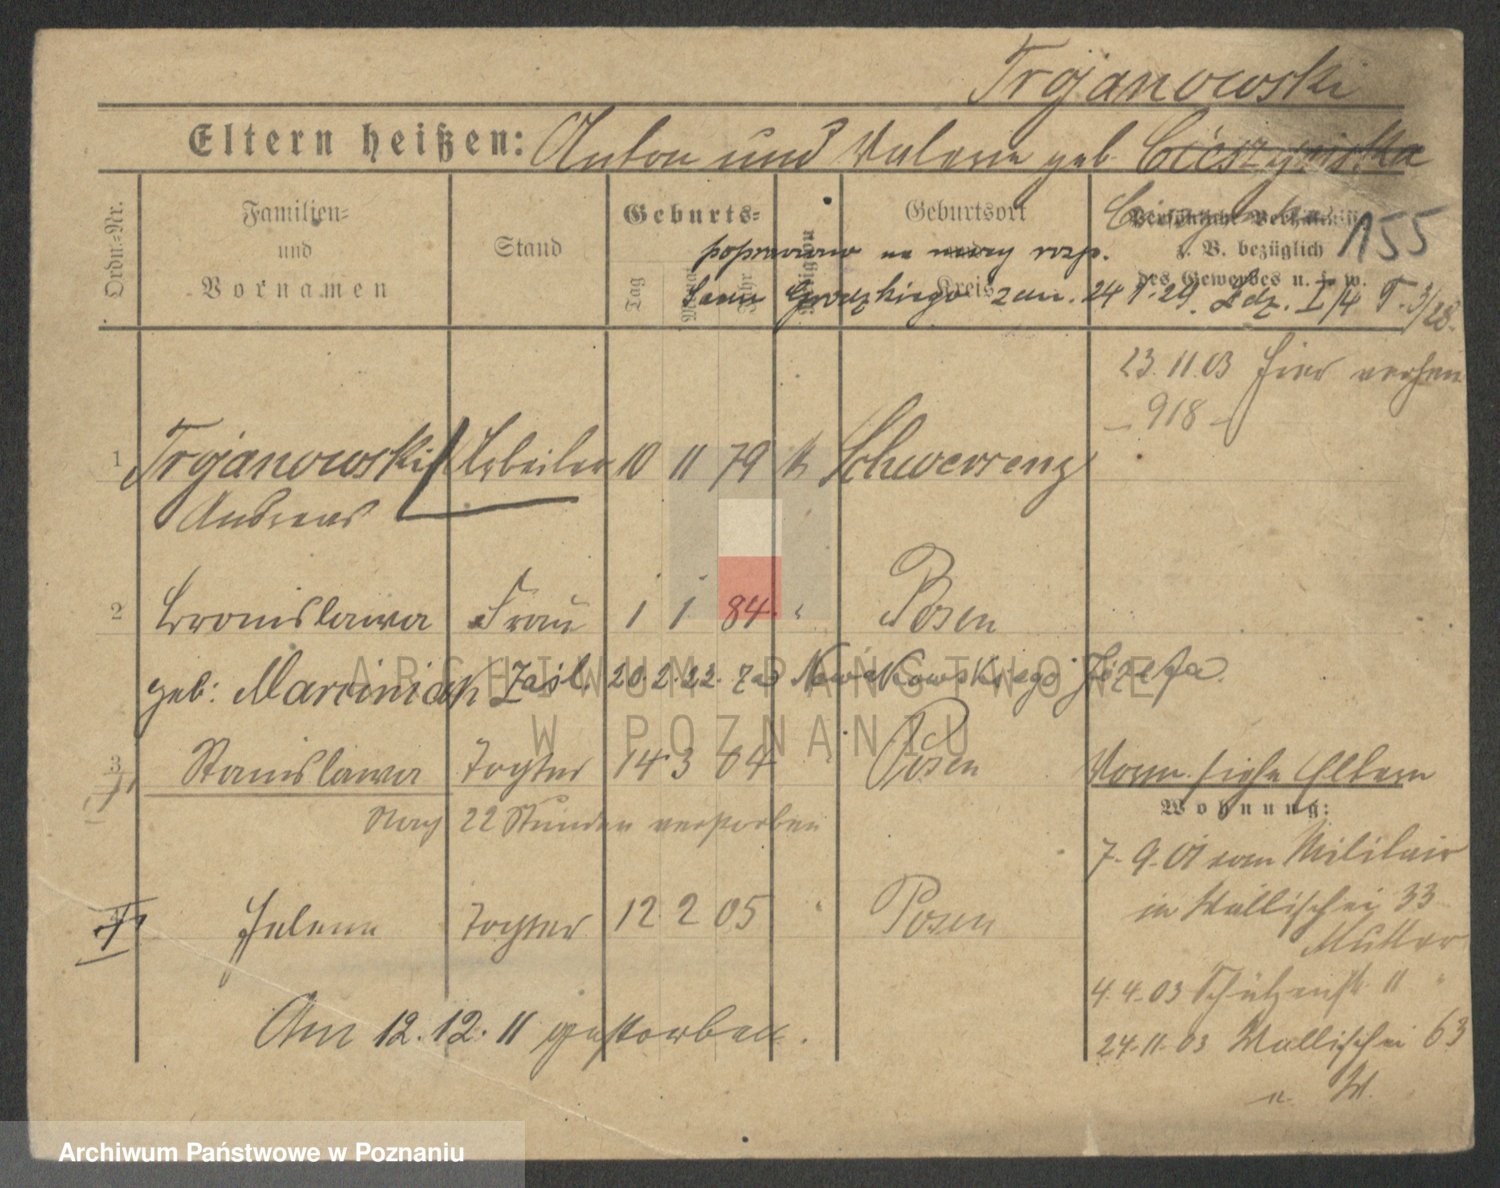 Trojanowski
Eltern heißen: Anton und Valerie geb. Cieszynska
Ordn.-Nr.
Familien-
und
Vornamen
Stand
Geburts-
Tag
Monat
Jahr
Religion
Geburtsort
Kreis
Persönliche Verhältnisse
z. B. bezüglich
des Gewerbes u. s. w.
155
poprawiono na mocy rozp.
Sądu Grodzkiego z dn. 24 1. 29. Ldz. I/4 T. 3/28.
23. 11. 03 hier verhei
918
1 Trojanowski Arbeiter 10 11 79 k Schwersenz
Andreas
2 Bronislawa Frau 1 1 84 " Posen
geb: Marciniak zaśl. 20. 2. 22. za Nowakowskiego Józefa.
3 Stanislawa Tochter 14 3 04 " Posen
Vorm. siehe Eltern
Nach 22 Stunden verstorben
Wohnung:
7. 9. 01 vom Militair
in Wallischei 33
Mutter
Helene Tochter 12 2 05 " Posen
4. 4. 03 Schützenstr. 11 "
Am 12. 12. 11 gestorben.
24. 11. 03 Wallischei 63
u. W.
ARCHIWUM PAŃSTWOWE
W POZNANIU
Archiwum Państwowe w Poznaniu